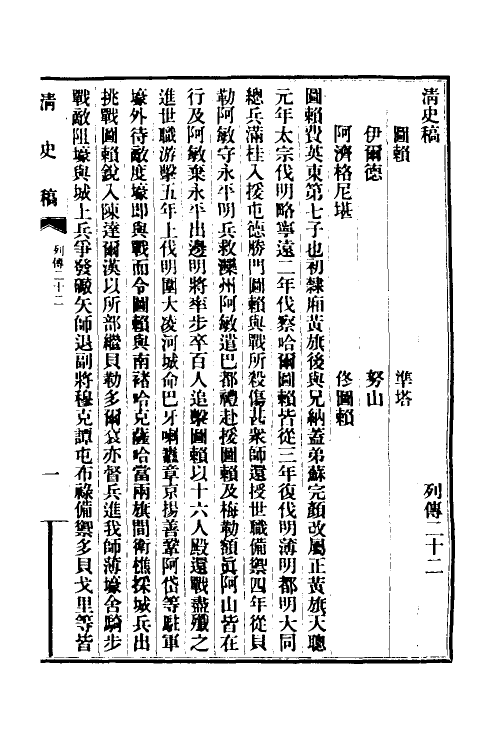 清史稿　列傳二十二
圖賴　準塔
伊爾德　努山
阿濟格尼堪　佟圖賴
圖賴費英東第七子也初隸廂黃旗後與兄納蓋弟蘇完顏改屬正黃旗天聰
元年太宗伐明略寧遠二年伐察哈爾圖賴皆從三年復伐明薄明都明大同
總兵滿桂入援屯德勝門圖賴與戰所殺傷甚衆師還授世職備禦四年從貝
勒阿敏守永平明兵救灤州阿敏遣巴都禮赴援圖賴及梅勒額眞阿山皆在
行及阿敏棄永平出邊明將率步卒百人追擊圖賴以十六人殿還戰盡殲之
進世職游擊五年上伐明圍大凌河城命巴牙喇纛章京揚善鞏阿岱等駐軍
壕外待敵度壕卽與戰而令圖賴與南褚哈克薩哈當兩旗間衛樵採城兵出
挑戰圖賴銳入陳達爾漢以所部繼貝勒多爾袞亦督兵進我師薄壕舍騎步
戰敵阻壕與城上兵爭發礮矢師退副將穆克譚屯布祿備禦多貝戈里等皆
清史稿　列傳二十二　一